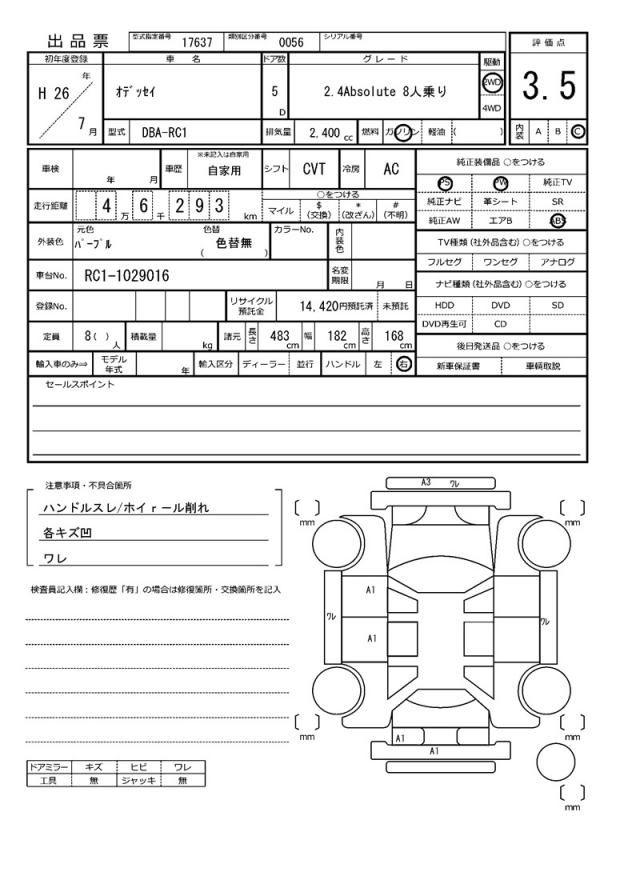 出品票 型式指定番号 17637 類別区分番号 0056 シリアル番号
初年度登録 車名 ドア数 グレード 駆動 評価点
H 26 年 7 月 ｵﾃﾞｯｾｲ 5 D 2.4Absolute 8人乗り 2WD 4WD 3.5
型式 DBA-RC1 排気量 2,400 cc 燃料 ガソリン 軽油 ( ) 内装 A B C
車検 年 月 車歴 ※未記入は自家用 自家用 シフト CVT 冷房 AC 純正装備品 ○をつける
PS PW 純正TV
走行距離 4 万 6 千 2 9 3 km ○をつける 純正ナビ 革シート SR
マイル $ (交換) * (改ざん) # (不明) 純正AW エアB ABS
外装色 元色 ﾊﾟｰﾌﾟﾙ 色替 ( 色替無 ) カラーNo. 内装色 TV種類 (社外品含む) ○をつける
フルセグ ワンセグ アナログ
車台No. RC1-1029016 名変期限 月 日 ナビ種類 (社外品含む) ○をつける
登録No. リサイクル預託金 14,420円預託済 未預託 HDD DVD SD
DVD再生可 CD
定員 8 ( ) 人 積載量 kg 諸元 長さ 483 cm 幅 182 cm 高さ 168 cm 後日発送品 ○をつける
輸入車のみ⇒ モデル年式 年 輸入区分 ディーラー 並行 ハンドル 左 右 新車保証書 車輌取説
セールスポイント
注意事項・不具合箇所
ハンドルスレ/ホイｒール削れ
各キズ凹
ワレ
検査員記入欄：修復歴「有」の場合は修復箇所・交換箇所を記入
A3 ﾜﾚ
mm mm
A1
ﾜﾚ ﾜﾚ
A1
mm mm
A1
A1
mm
ドアミラー キズ ヒビ ワレ
工具 無 ジャッキ 無